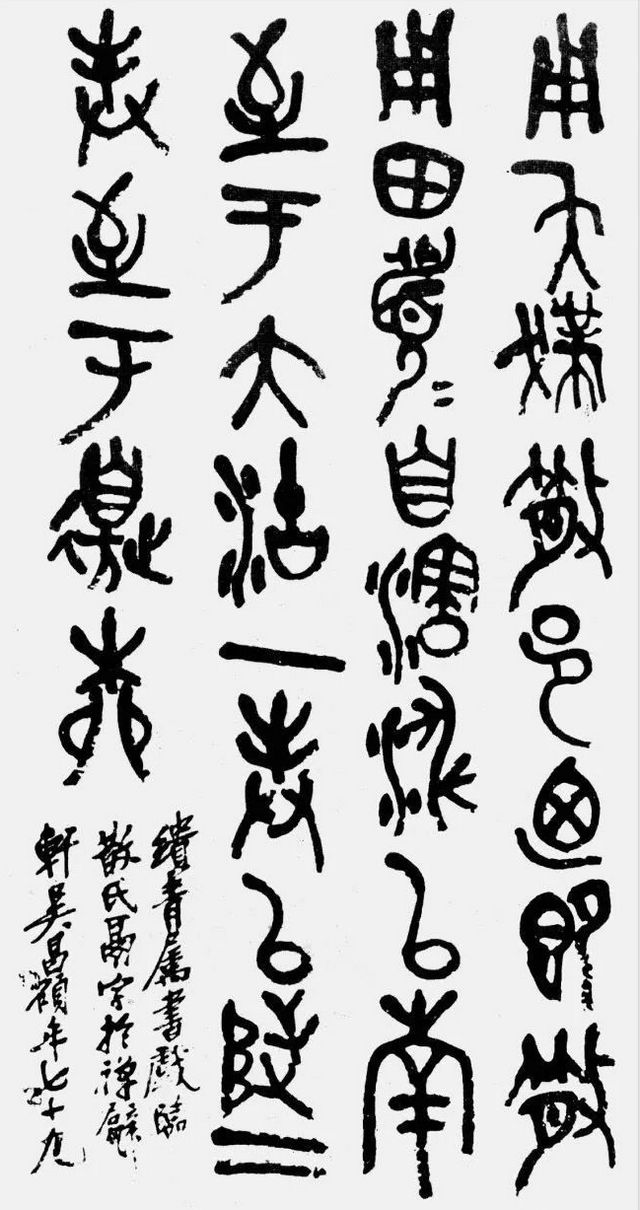 用夨撲散邑迺即散
用田眉自瀗涉以南
至于大沽一封以陟二
封至于邊柳
績青属書戲臨
散氏鬲字於禪甓
軒吳昌碩年七十九